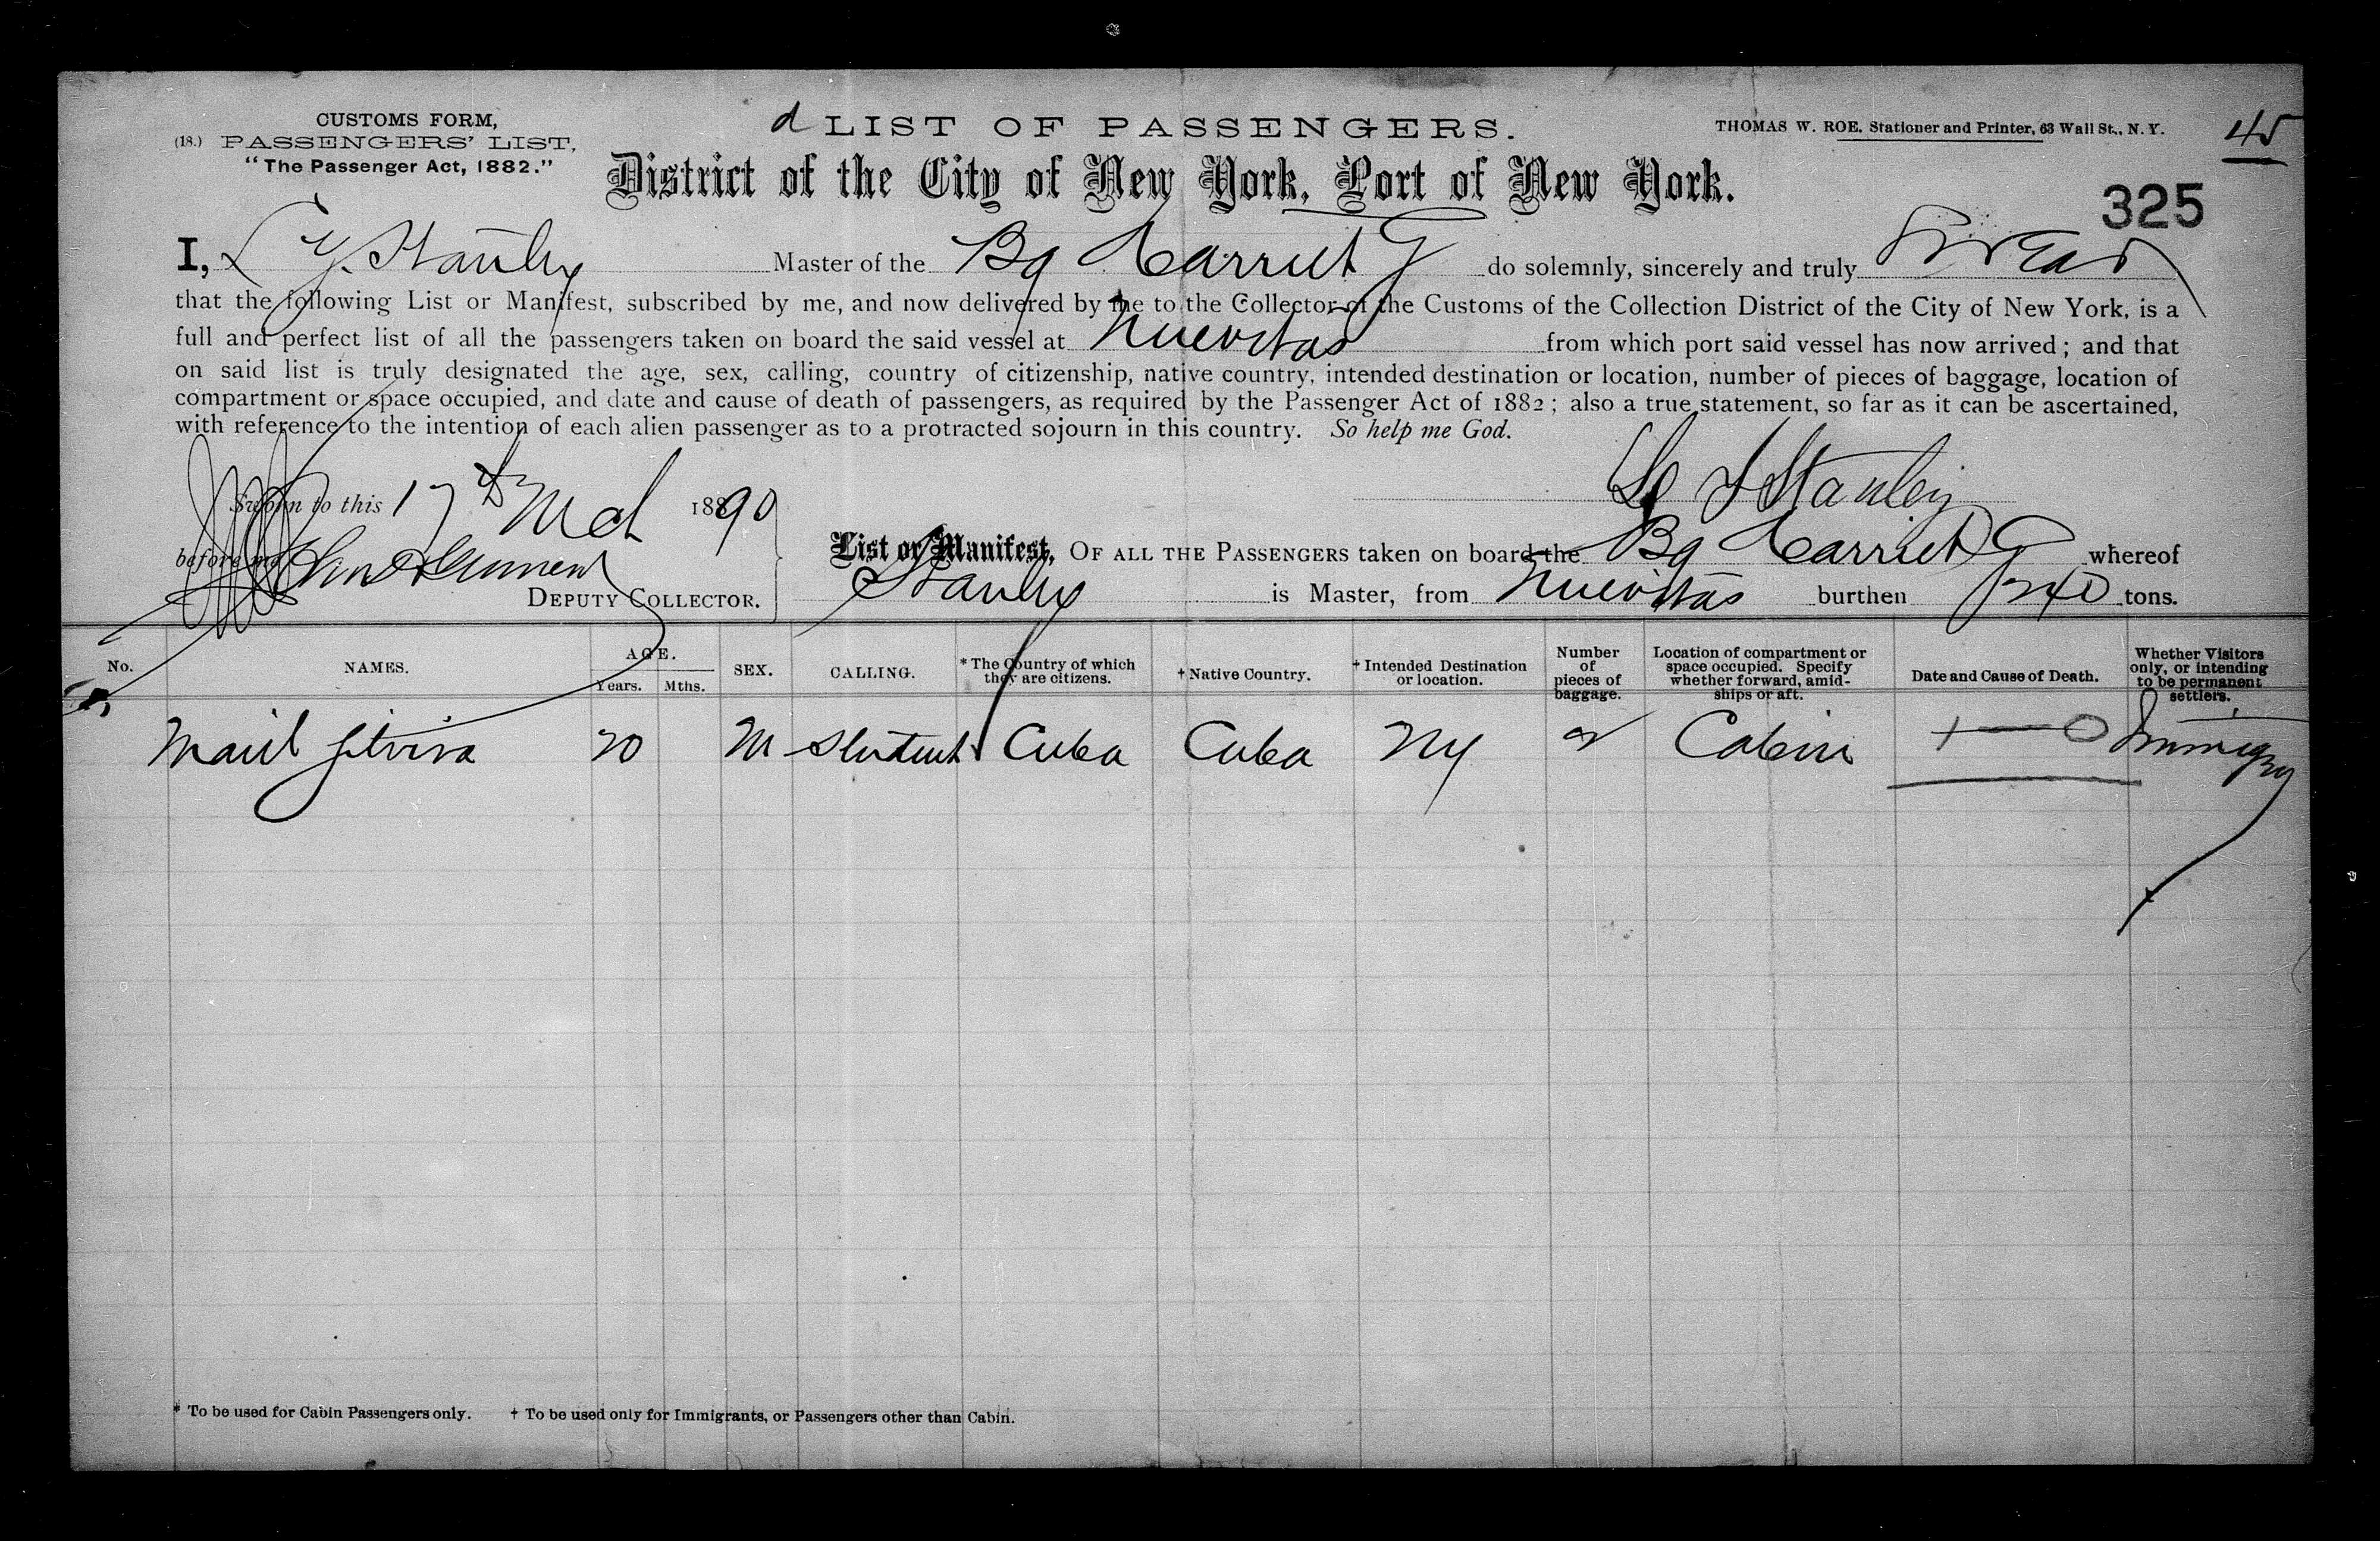 CUSTOMS FORM,
(18.) PASSENGERS' LIST,
"The Passenger Act, 1882."
d LIST OF PASSENGERS.
THOMAS W. ROE, Stationer and Printer, 63 Wall St., N. Y.
45
District of the City of New York, Port of New York.
325
I, L Y. Stanley Master of the Bg Harriet G do solemnly, sincerely and truly Swear
that the following List or Manifest, subscribed by me, and now delivered by me to the Collector of the Customs of the Collection District of the City of New York, is a
full and perfect list of all the passengers taken on board the said vessel at Nuevitas from which port said vessel has now arrived; and that
on said list is truly designated the age, sex, calling, country of citizenship, native country, intended destination or location, number of pieces of baggage, location of
compartment or space occupied, and date and cause of death of passengers, as required by the Passenger Act of 1882; also a true statement, so far as it can be ascertained,
with reference to the intention of each alien passenger as to a protracted sojourn in this country. So help me God.
Sworn to this 17th Mch 1890
Stanley
before me
DEPUTY COLLECTOR.
List or Manifest, OF ALL THE PASSENGERS taken on board the Bg Harriet G whereof
Stanley is Master, from Nuevitas burthen 240 tons.
No. NAMES. AGE. Years. Mths. SEX. CALLING. * The Country of which they are citizens. † Native Country. † Intended Destination or location. Number of pieces of baggage. Location of compartment or space occupied. Specify whether forward, amidships or aft. Date and Cause of Death. Whether Visitors only, or intending to be permanent settlers.
20 M Student Cuba Cuba NY 2 Cabin
* To be used for Cabin Passengers only. † To be used only for Immigrants, or Passengers other than Cabin.